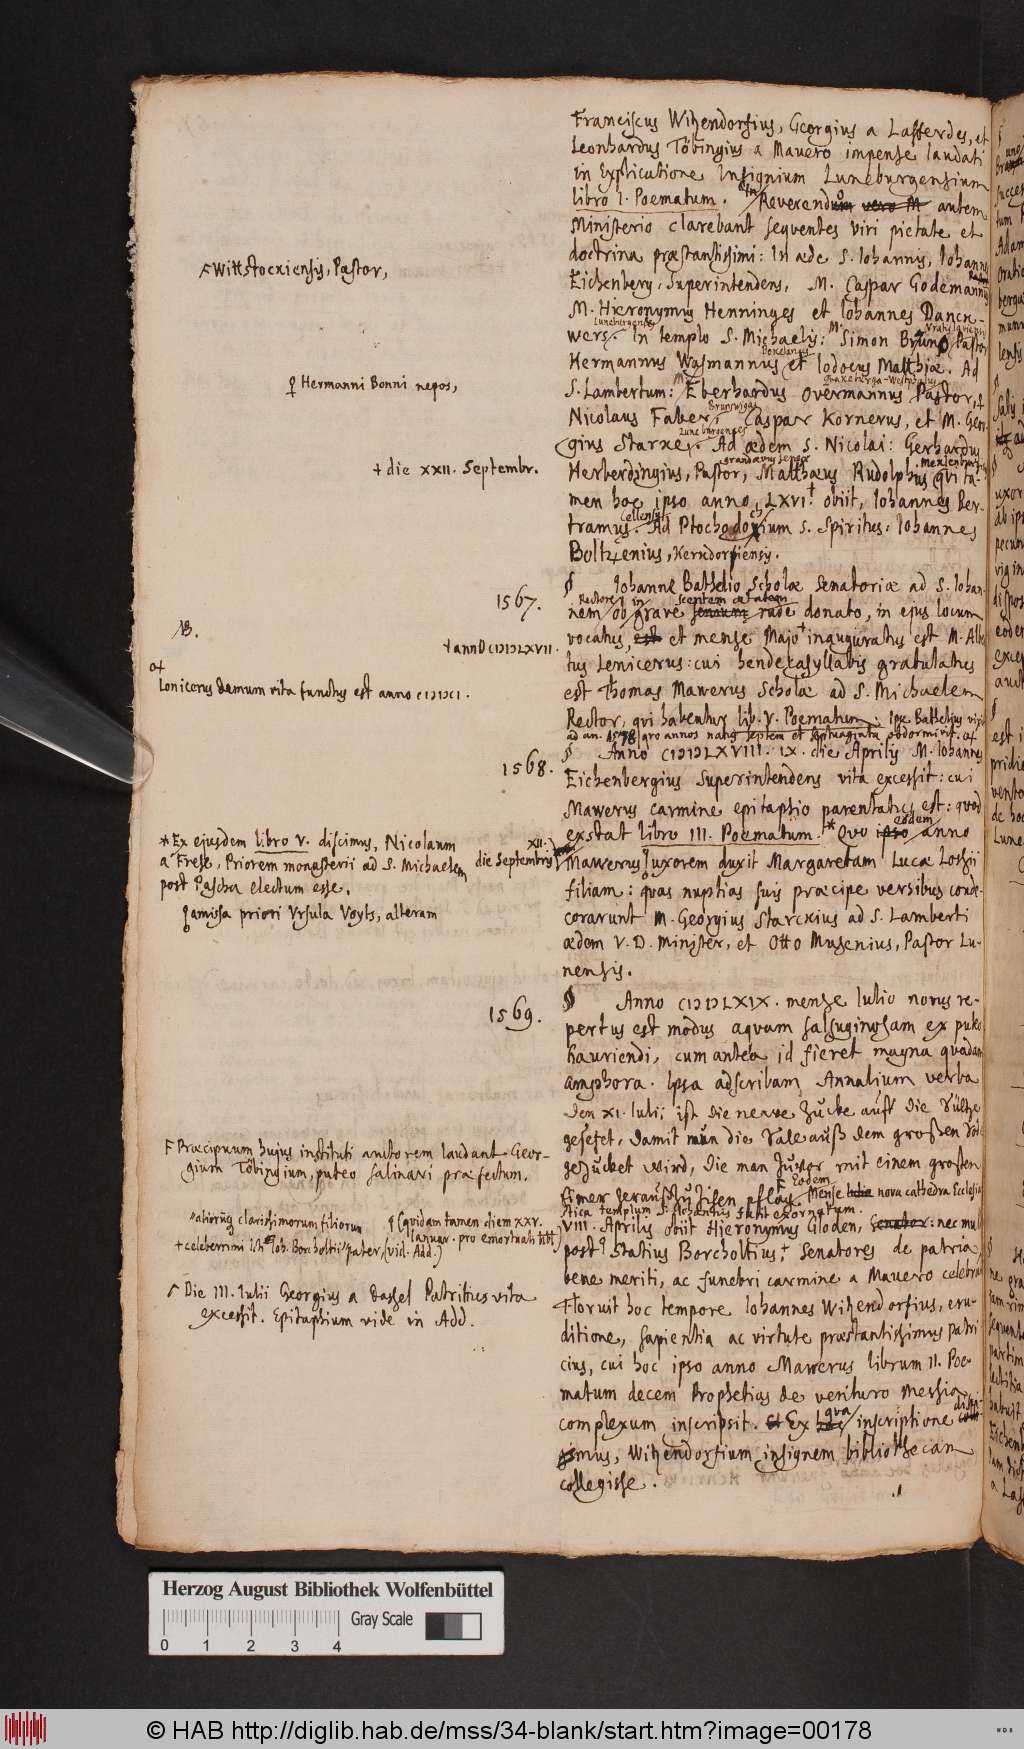 Franciscus Witzendorfius, Georgius a Lafferdes, et
Leonhardus Töbingius a Mavero impense laudati
in Explicatione Insignium Luneburgensium
libro I. Poematum. In Reverendo vero M autem
Ministerio clarebant sequentes viri pietate et
doctrina præstantissimi: In æde S. Iohannis, Iohannes
Eichenberg, Superintendens, M. Caspar Godemannus
M. Hieronymus Henninges et Iohannes Danck-
wers. In templo S. Michaelis: M. Simon Bruno Pastor
Luneburgenses
Hermannus Wasmannus et Iodocus Matthiæ. Ad
S. Lambertum: M. Eberhardus Overmannus Pastor, ♀
Nicolaus Faber, Caspar Kornerus, et M. Geor-
gius Starxe. Ad ædem S. Nicolai: Gerhardus
Luneburgenses
Herberdingius, Pastor, Matthæus Rudolphus qui ta-
men hoc ipso anno LXVI.† obiit, Iohannes Ber-
tramus. Ad Ptochodochium S. Spiritus: Iohannes
Boltzenius,
Wittstockiensis, Pastor,
♀ Hermanni Bonni nepos,
† die XXII. Septembr.
1567.
§ Iohanne Bathelio Scholæ Senatoriæ ad S. Iohan-
nem Rectore, ob in grave senium sceptem ætatem rude donato, in ejus locum
vocatus, est et mense Majo† inauguratus est M. Alber-
tus Lenicerus: cui hendecasyllabis gratulatus
est Thomas Mawerus Scholæ ad S. Michaelem
Rector, qui habentur lib. V. Poematum. Ipse Bathelius vixit
ad an. 1578 annos natus septem et septuaginta obdormivit.
NB.
† ann CIƆIƆLXVII.
Lonicerus demum vita functus est anno CIƆIƆCI.
1568.
§ Anno CIƆIƆLXVIII. IX. die Aprilis M. Iohannes
Eichenbergius Superintendens vita excessit: cui
Mawerus carmine epitaphio parentatus est: quod
exstat libro III. Poematum.* Quo ipso eodem anno
Mawerus uxorem duxit Margaretam Lucæ Lossii
filiam: quas nuptias suis præcipe versibus conde-
corarunt M. Georgius Starckius ad S. Lamberti
ædem V. D. Minister, et Otto Musenius, Pastor Lu-
nensis.
* Ex ejusdem libro V. discimus, Nicolaum
a Frese, Priorem monasterii ad S. Michaelem
post Pascha electum esse.
XII.
die Septembris
amissa priori Ursula Voyts, alteram
1569.
§ Anno CIƆIƆLXIX. mense Iulio novus re-
pertus est modus aquam salsuginosam ex puteo
hauriendi, cum antea id fieret magna quadam
amphora. Ipsa adscribam Annalium verba
Den XI. Iulii ist die newe Zucke auff die Sültze
gesetet, damit man die Sale auß dem großen Sode
gezucket wird, die man zuvor mit einem großen
Emer herauß zu zihen pflag. Eodem Mense nova cathedra Ecclesia
stica templum S. Iohannis fuit exornatum.
VIII. Aprilis obiit Hieronymus Gloden, Senator: nec mul
post Statius Borcholtius,† Senatores de patria
bene meriti, ac funebri carmine a Mavero celebrati
Floruit hoc tempore Iohannes Witzendorfius, eru-
ditione, sapientia ac virtute præstantissimus patri
cius, cui hoc ipso anno Mawerus librum II. Poe-
matum decem Prophetias de venturo Messia
complexum inscripsit. Et Ex qua inscriptione disci-
mus, Witzendorfium insignem bibliothecam
collegisse.
F Præcipuum hujus instituti autorem laudant Geor-
gium Töbingium, puteo salinari præfectum.
aliorumq clarissimorum filiorum
(quidam tamen diem XXV.
Ianuar. pro emortuali habet)
† celeberrimi Icti Ioh. Borcholtii pater, (vid. Add.)
Die III. Iulii Georgius a Dassel Patritius vita
excessit. Epitaphium vide in Add.
Herzog August Bibliothek Wolfenbüttel
Gray Scale
0 1 2 3 4
© HAB http://diglib.hab.de/mss/34-blank/start.htm?image=00178